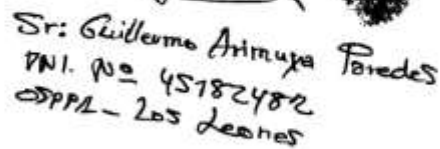 Sr: Guillermo Arimuya Paredes
DNI. Nº 45182482
OSPPA - Los Leones